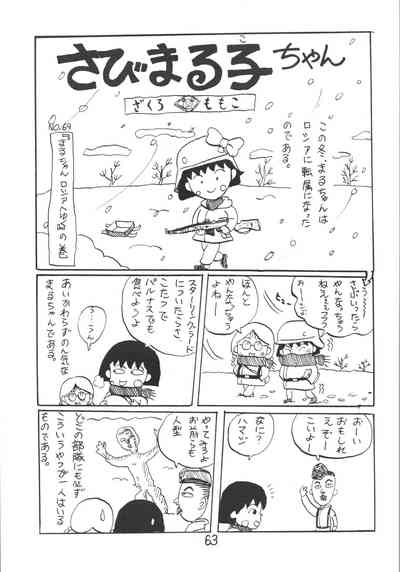 さびまる子ちゃん
ざくろももこ
No.69
『まるちゃん ロシアへゆく』の巻
この冬、まるちゃんは
ロシアに転属になった
のである。
さぶいったら
やんなっちゃう
ねえ
ほんと
やんなっちゃう
よねー
スターリングラード
についたらさ
こたつで
パルナスでも
食べようよ
うーうん
あいかわらずのん気な
まるちゃんである。
おーい
おもしれ
えぞー
こいよー
なに?
ハマジ
やってみろよ
お前らも
人型
どこの部隊にも必ず
こういうやつが一人はいる
ものである。
63